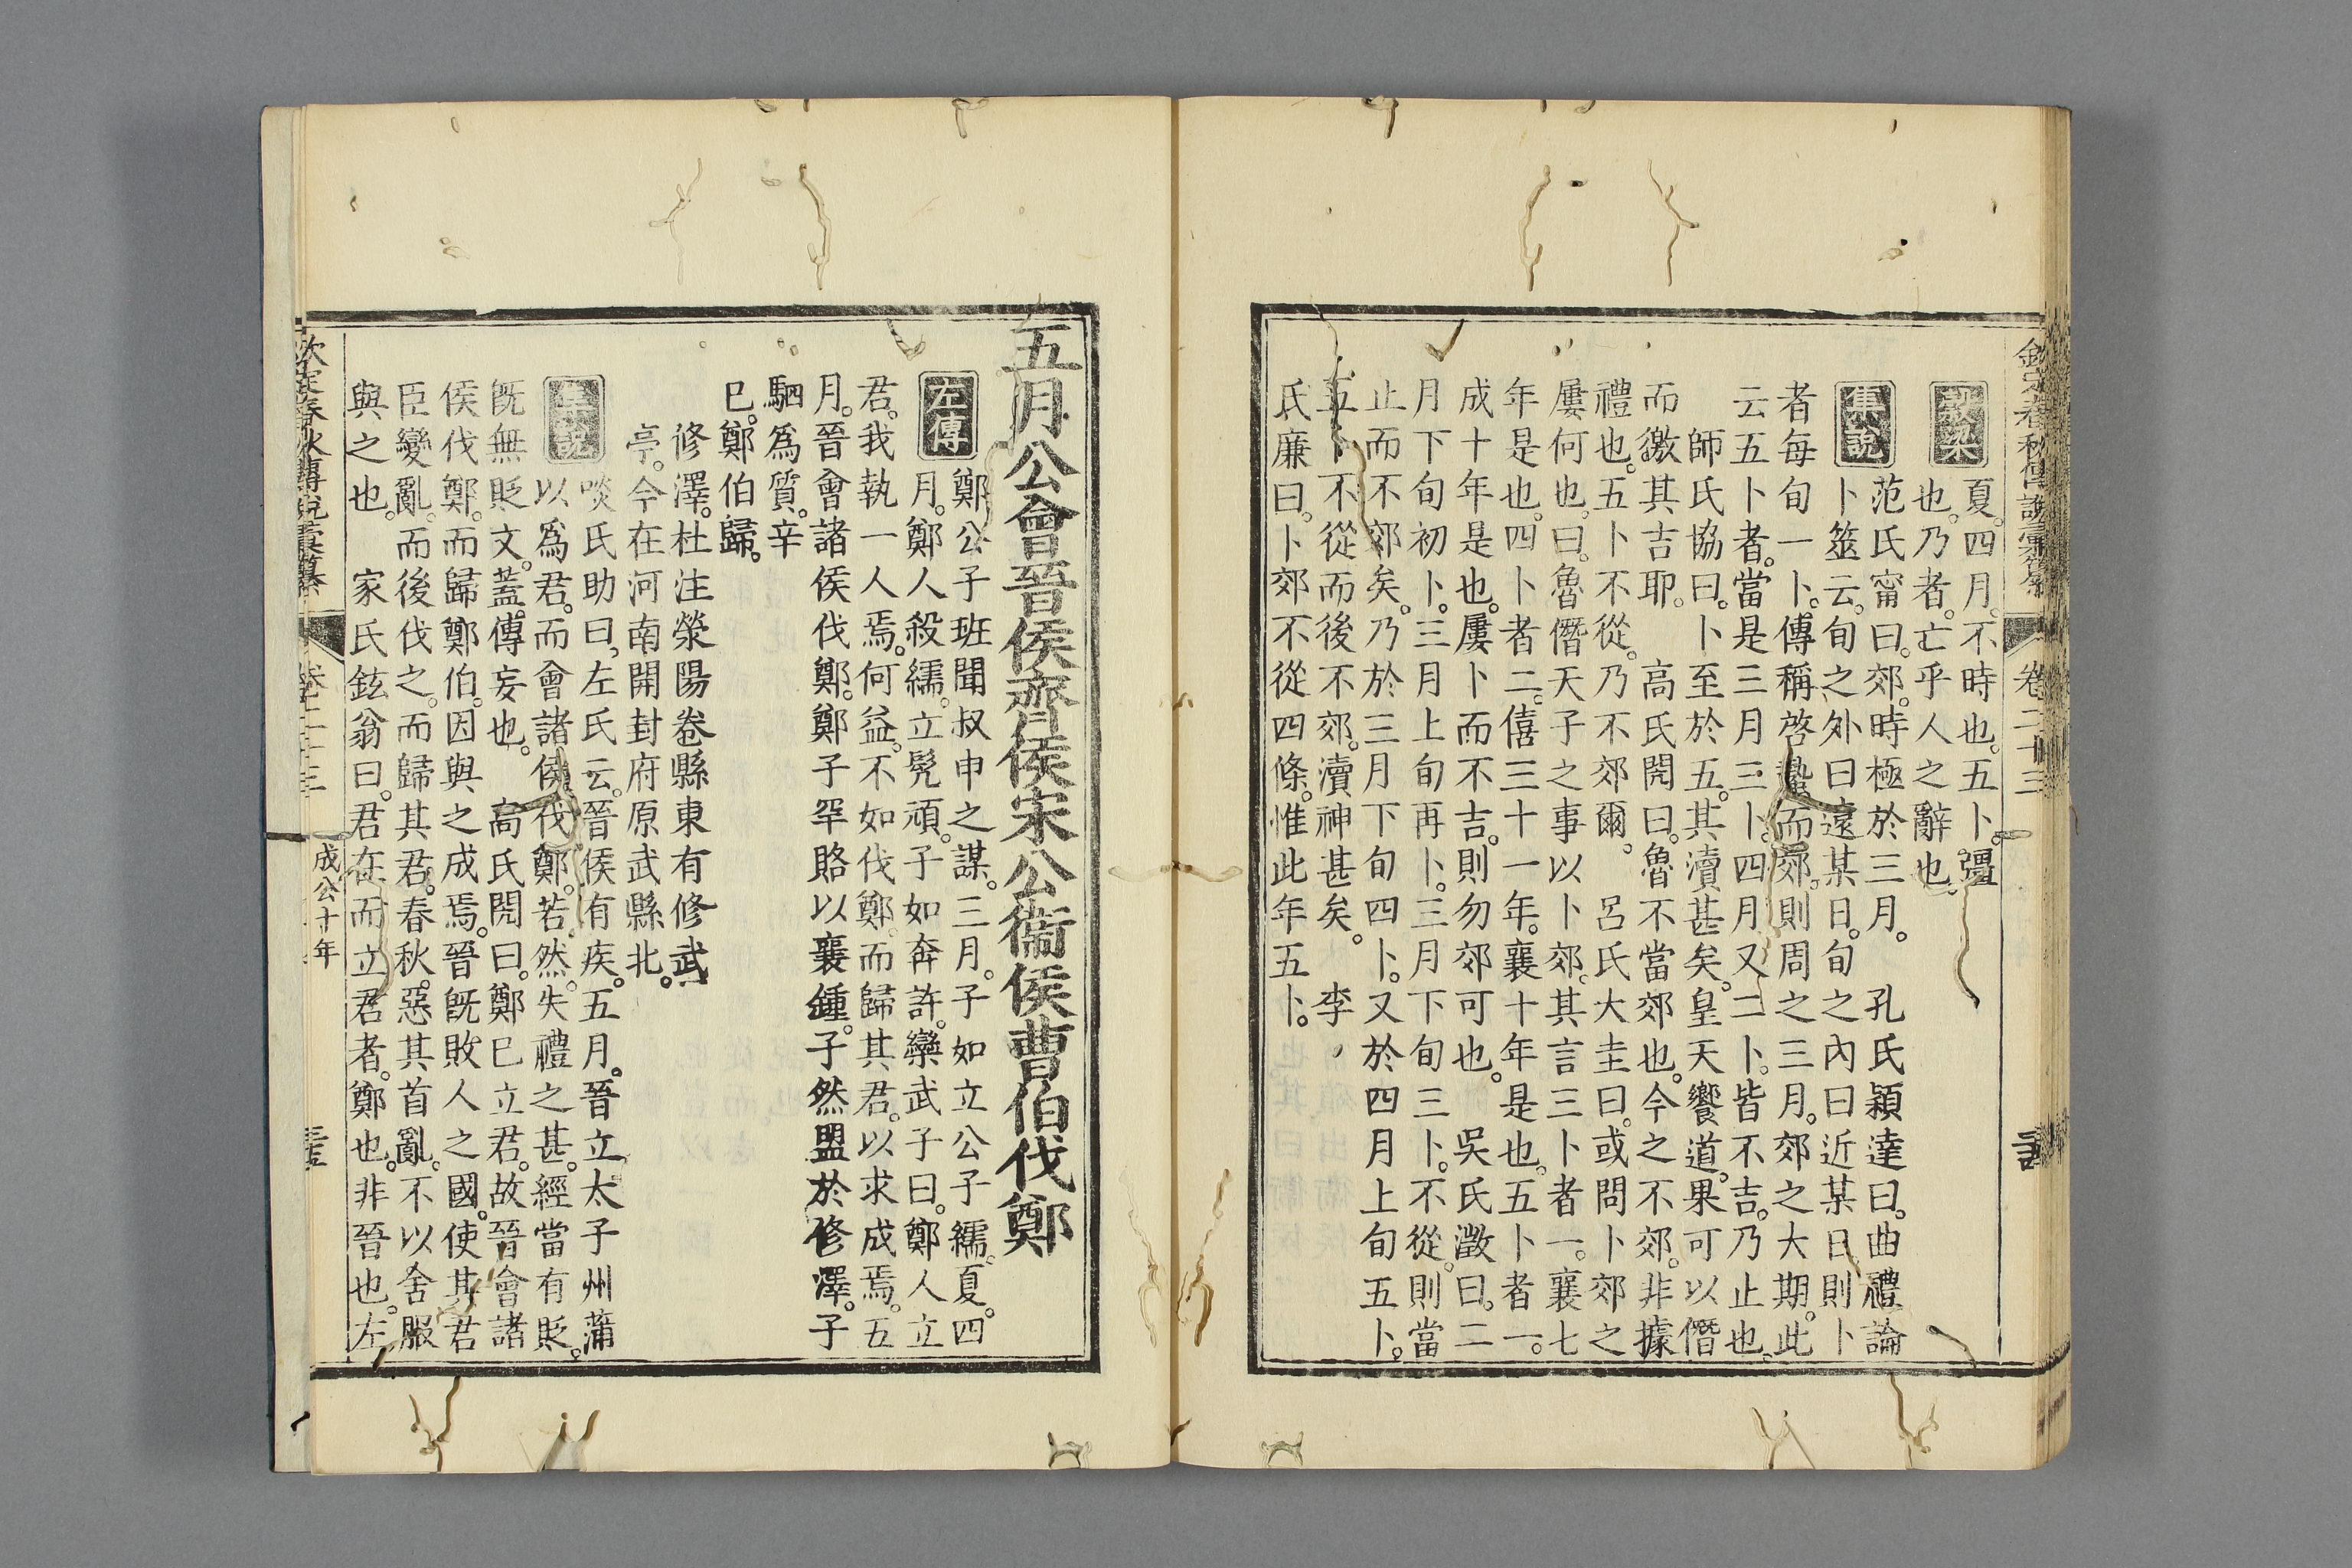 欽定春秋傳說彙纂 卷二十三
穀梁
夏四月。不時也。五卜。彊
也。乃者。亡乎人之辭也。
集說
范氏甯曰。郊。時極於三月。 孔氏穎達曰。曲禮論
卜筮云。旬之外曰遠某日。旬之內曰近某日。則卜
者每旬一卜。傳稱啓蟄而郊。則周之三月。郊之大期。此
云五卜者。當是三月三卜。四月又二卜。皆不吉。乃止也。
師氏協曰。卜至於五。其瀆甚矣。皇天饗道。果可以僭
而徼其吉耶。 高氏閌曰。魯不當郊也。今之不郊。非據
禮也。五卜不從。乃不郊爾。 呂氏大圭曰。或問卜郊之
屢何也。曰。魯僭天子之事以卜郊。其言三卜者一。襄七
年是也。四卜者二。僖三十一年。襄十年是也。五卜者一。
成十年是也。屢卜而不吉。則勿郊可也。 吳氏澂曰。二
月下旬初卜。三月上旬再卜。三月下旬三卜。不從。則當
止而不郊矣。乃於三月下旬四卜。又於四月上旬五卜。
五卜不從而後不郊。瀆神甚矣。 李
氏廉曰。卜郊不從四條。惟此年五卜。
五月公會晉侯齊侯宋公衞侯曹伯伐鄭
左傳
鄭公子班聞叔申之謀。三月。子如立公子繻。夏。四
月。鄭人殺繻。立髠頑。子如奔許。欒武子曰。鄭人立
君。我執一人焉。何益。不如伐鄭。而歸其君。以求成焉。五
月。晉會諸侯伐鄭。鄭子罕賂以襄鍾。子然盟於修澤。子
駟爲質。辛
巳。鄭伯歸。
修澤。杜注滎陽卷縣東有修武
亭。今在河南開封府原武縣北。
集說
啖氏助曰。左氏云。晉侯有疾。五月。晉立太子州蒲
以爲君。而會諸侯伐鄭。若然。失禮之甚。經當有貶。
旣無貶文。蓋傳妄也。 高氏閌曰。鄭已立君。故晉會諸
侯伐鄭。而歸鄭伯。因與之成焉。晉旣敗人之國。使其君
臣變亂。而後伐之。而歸其君。春秋。惡其首亂。不以舍服
與之也。 家氏鉉翁曰。君在而立君者。鄭也。非晉也。左
欽定春秋傳說彙纂 卷二十三 成公十年 三五